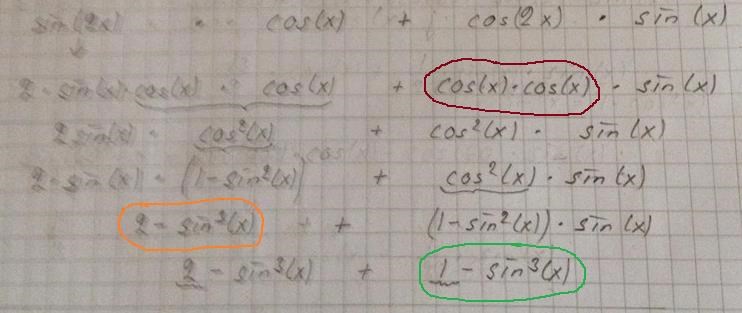 sin(2x) · cos(x) + cos(2x) · sin(x)
2 · sin(x) · cos(x) · cos(x) + cos(x) · cos(x) · sin(x)
2 sin(x) · cos²(x) + cos²(x) · sin(x)
2 · sin(x) · (1 - sin²(x)) + cos²(x) · sin(x)
2 - sin³(x) + (1 - sin²(x)) · sin(x)
2 - sin³(x) + 1 - sin³(x)